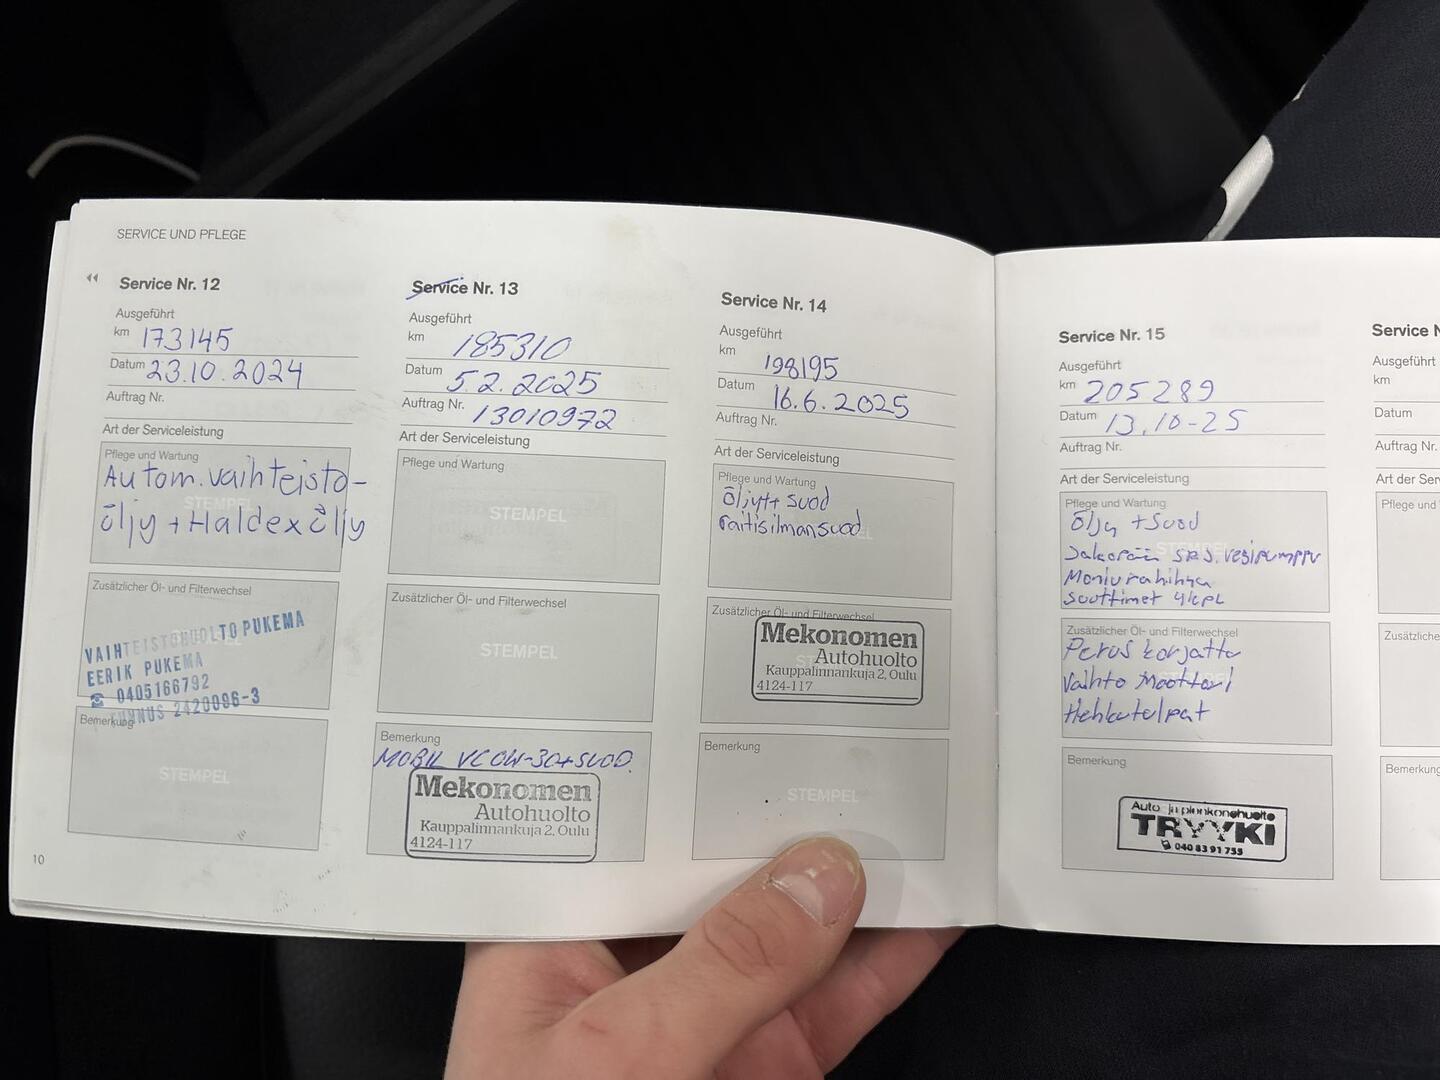 SERVICE UND PFLEGE
Service Nr. 12
Ausgeführt
km 173145
Datum 23.10.2024
Auftrag Nr.
Art der Serviceleistung
Pflege und Wartung
Autom.vaihteisto-
öljy + Haldex öljy
STEMPEL
Zusätzlicher Öl- und Filterwechsel
VAIHTEISTOHUOLTO PUKEMA
EERIK PUKEMA
☎ 0405166792
TUNNUS 2420096-3
Bemerkung
STEMPEL
10
Service Nr. 13
Ausgeführt
km 185310
Datum 5.2.2025
Auftrag Nr. 13010972
Art der Serviceleistung
Pflege und Wartung
STEMPEL
Zusätzlicher Öl- und Filterwechsel
STEMPEL
Bemerkung
MOBIL VCOW-30+SUOD.
Mekonomen
Autohuolto
Kauppalinnankuja 2, Oulu
4124-117
Service Nr. 14
Ausgeführt
km 198195
Datum 16.6.2025
Auftrag Nr.
Art der Serviceleistung
Pflege und Wartung
Öljyt+ suod
raitisilmansuod
Zusätzlicher Öl- und Filterwechsel
Mekonomen
Autohuolto
Kauppalinnankuja 2, Oulu
4124-117
Bemerkung
STEMPEL
Service Nr. 15
Ausgeführt
km 205289
Datum 13.10-25
Auftrag Nr.
Art der Serviceleistung
Pflege und Wartung
Öljy + Suod
Jakopää SRJ. vesipumppu
Moniurahihna
Suuttimet 4kpl
Zusätzlicher Öl- und Filterwechsel
Perus korjattu
Vaihto Moottori
Hehkutulpat
Bemerkung
Auto- ja pienkonehuolto
TRYYKI
040 83 91 755
Service N
Ausgeführt
km
Datum
Auftrag Nr.
Art der Serv
Pflege und
Zusätzliche
Bemerkung